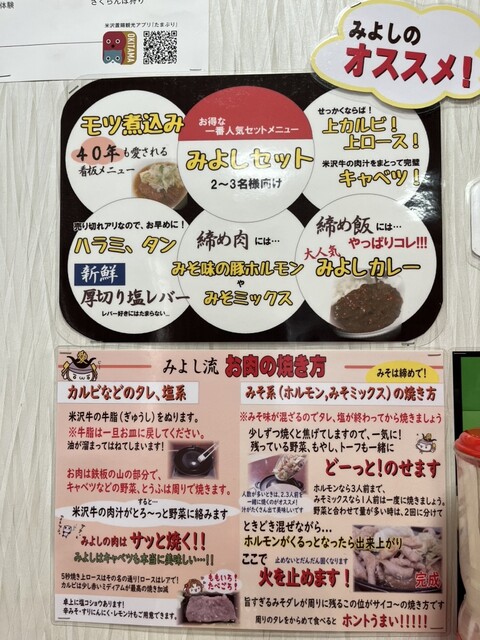 体験
さくらんぼ狩り
米沢置賜観光アプリ「たまぷり」
OKITAMA
みよしの
オススメ！
モツ煮込み
40年も愛される
看板メニュー
お得な
一番人気セットメニュー
みよしセット
2～3名様向け
せっかくならば！
上カルビ！
上ロース！
米沢牛の肉汁をまとって完璧
キャベツ！
売り切れアリなので、お早めに！
ハラミ、タン
新鮮
厚切り塩レバー
レバー好きにはたまらない…
締め肉には…
みそ味の豚ホルモン
や
みそミックス
締め飯には…
やっぱりコレ!!!
大人気
みよしカレー
みよし流 お肉の焼き方
みそは締めで！
カルビなどのタレ、塩系
米沢牛の牛脂（ぎゅうし）をぬります。
※牛脂は一旦お皿に戻してください。
油が溜まってはねてしまいます！
お肉は鉄板の山の部分で、
キャベツなどの野菜、とうふは周りで焼きます。
すると…
米沢牛の肉汁がとろ～っと野菜に絡みます
みよしの肉は サッと焼く!!
みよしはキャベツも本当に美味しい…!!
5秒焼き上ロースはその名の通り！ロースはレアで！
カルビは少し赤いミディアムが最高の焼き加減
卓上に塩コショウあります！
辛みそ・すりにんにく・レモン汁もご用意できます。
ももいろ！
たべごろ！
みそ系（ホルモン,みそミックス）の焼き方
※みそ味が混ざるのでタレ、塩が終わってから焼きましょう
少しずつ焼くと焦げてしますので、一気に！
残っている野菜、もやし、トーフも一緒に
どーっと！のせます
人数が多いときは、2,3人前を
一緒に焼くのがオススメ！
汁がたくさん出て美味しいです
ホルモンなら3人前まで、
みそミックスなら1人前は一度に焼きましょう。
野菜と合わせて量が多い時は、2回に分けて
ときどき混ぜながら…
ホルモンがくるっとなったら出来上がり
ここで
止めないとだんだん固くなります
火を止めます！
完成
旨すぎるみそダレが周りに残るこの位がサイコーの焼き方です
周りのタレをからめて食べると ホントうまい!!!!!